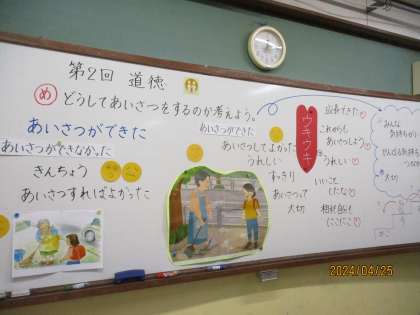 第2回 道徳
め どうしてあいさつをするのか考えよう。
あいさつができた
あいさつができなかった
きんちょう
あいさつすればよかった
あいさつができた
あいさつしてよかった
うれしい
すっきり
あいさつって
大切
ウキウキ
成長できた
これからも
あいさつしよう
うれしい
いいこと
したな
相手も
にこにこ
みんな
気持ちが
大切
2024/04/25